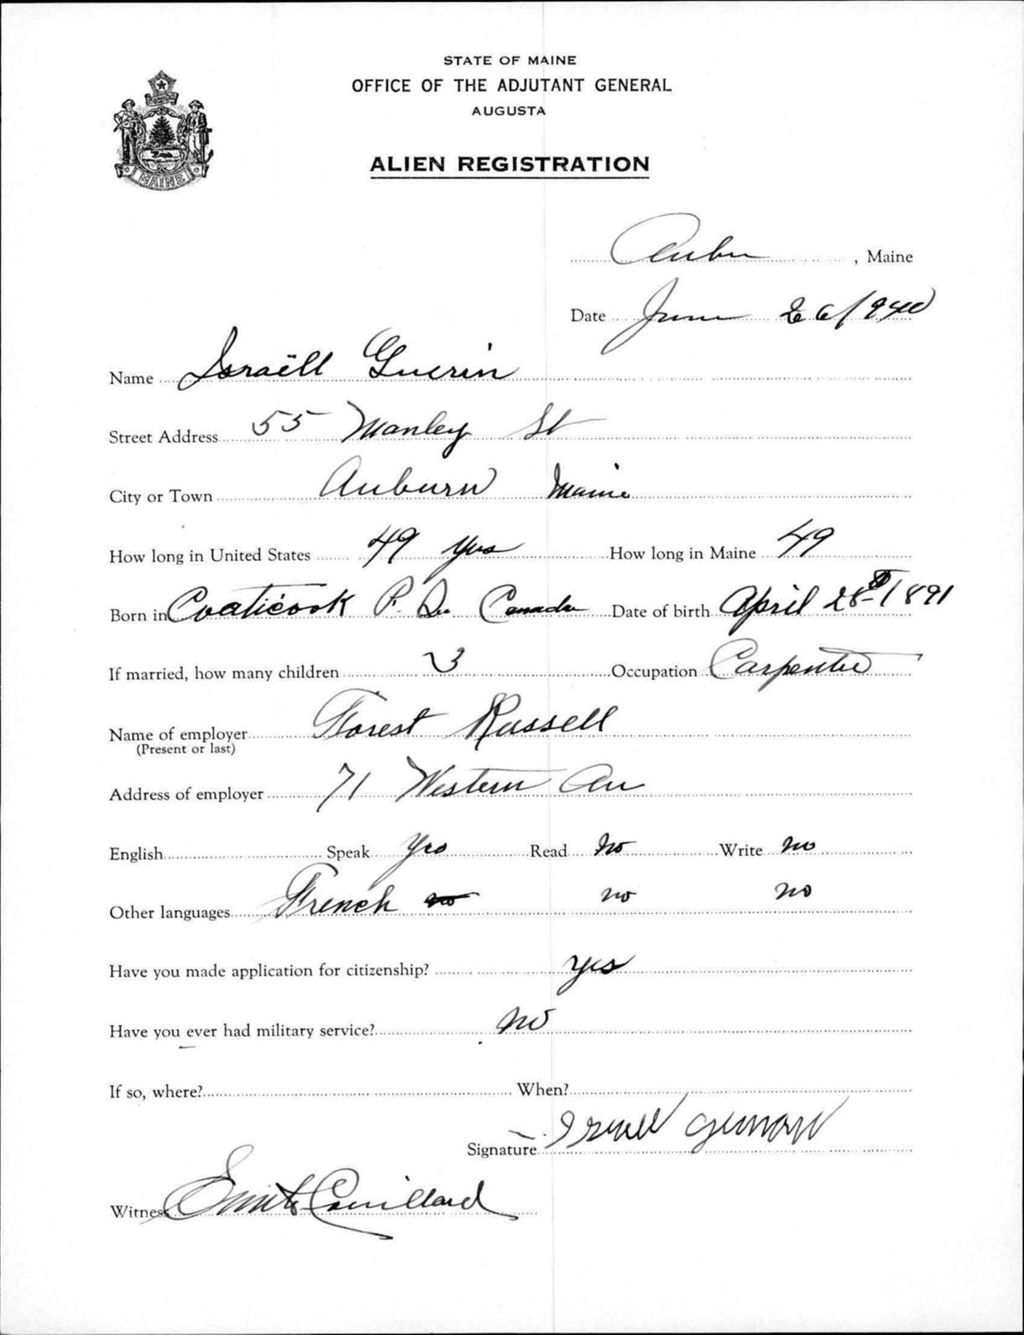 STATE OF MAINE
OFFICE OF THE ADJUTANT GENERAL
AUGUSTA
MAINE
ALIEN REGISTRATION
Aubu, Maine
Date June 26/940
Name Israëll Guerin
Street Address 55 Manley St
City or Town Auburn Maine
How long in United States 49 yrs How long in Maine 49
Born in Coaticook P. Qu Canada Date of birth April 28-1891
If married, how many children 3 Occupation Carpenter
Name of employer Forest Russell
(Present or last)
Address of employer 71 Western Av
English Speak Yes Read no Write no
Other languages French no no no
Have you made application for citizenship? yes
Have you ever had military service? no
If so, where? When?
Signature
Witness Couillard